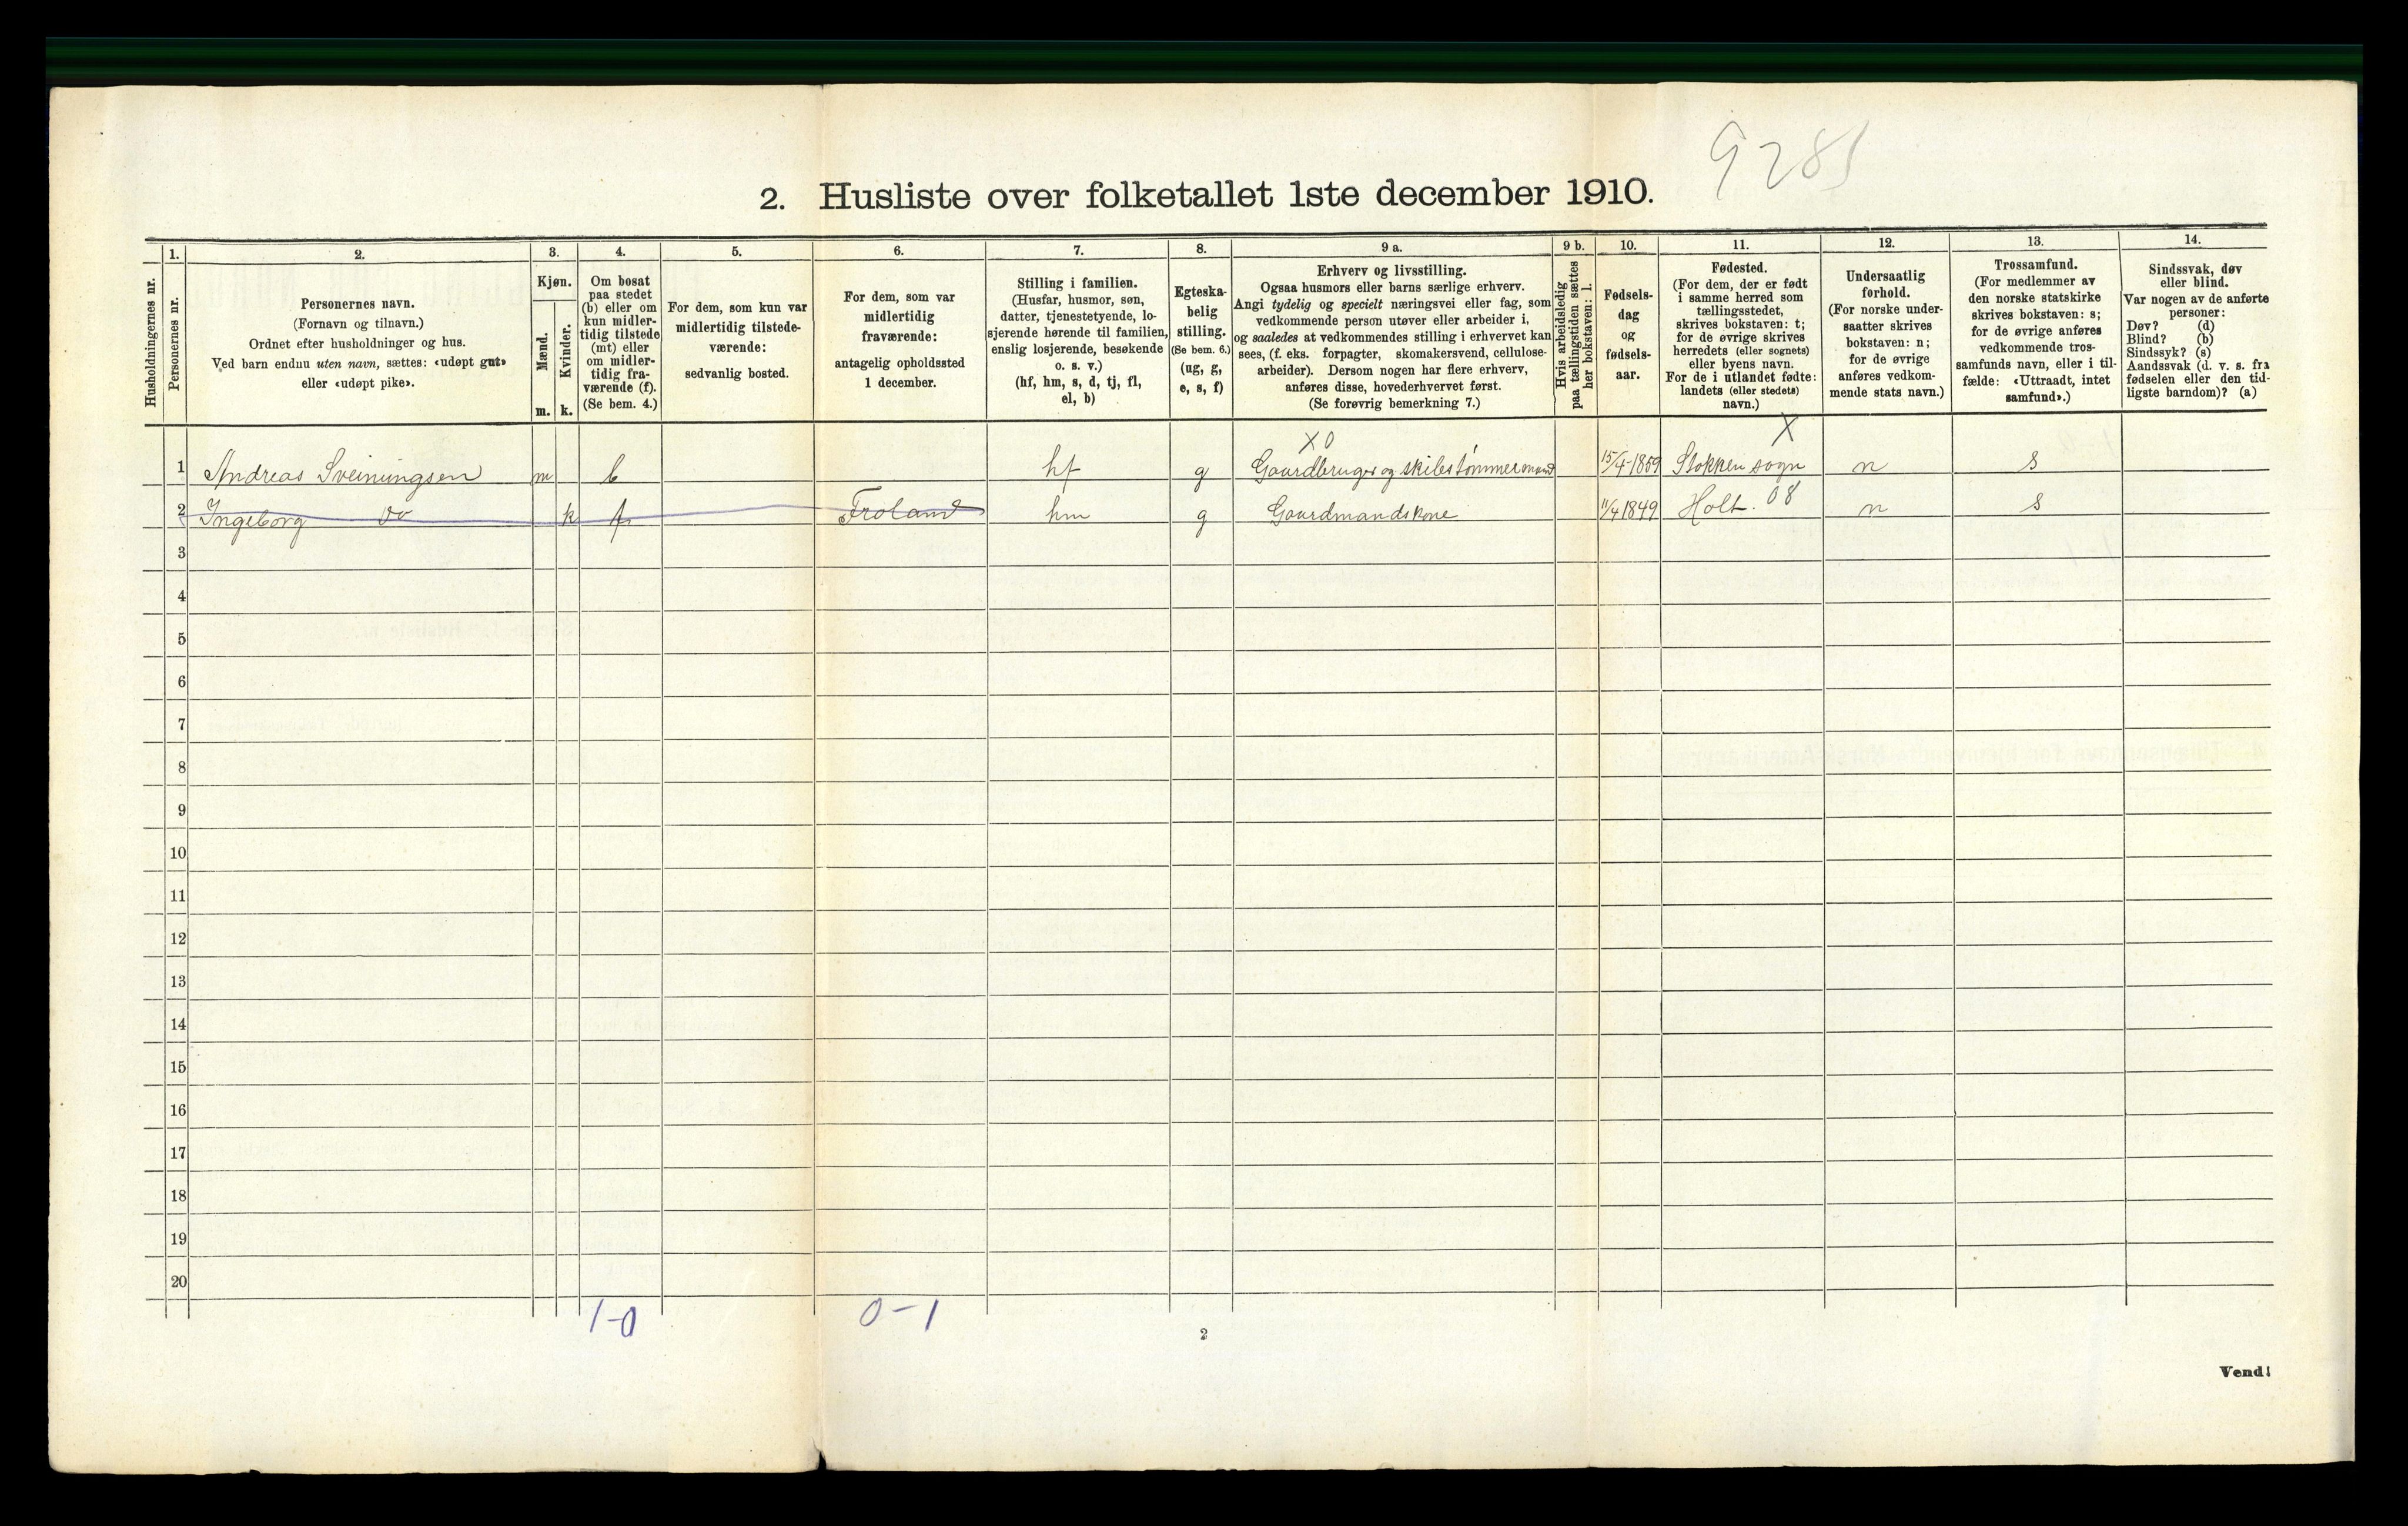 9281
2. Husliste over folketallet 1ste december 1910.
Husholdningernes nr.
1.
Personernes nr.
2.
Personernes navn.
(Fornavn og tilnavn.)
Ordnet efter husholdninger og hus.
Ved barn endnu uten navn, sættes: «udøpt gut»
eller «udøpt pike».
3.
Kjøn.
Mænd.
Kvinder.
m. k.
4.
Om bosat
paa stedet
(b) eller om
kun midler-
tidig tilstede
(mt) eller
om midler-
tidig fra-
værende (f).
(Se bem. 4.)
5.
For dem, som kun var
midlertidig tilstede-
værende:
sedvanlig bosted.
6.
For dem, som var
midlertidig
fraværende:
antagelig opholdssted
1 december.
7.
Stilling i familien.
(Husfar, husmor, søn,
datter, tjenestetyende, lo-
sjerende hørende til familien,
enslig losjerende, besøkende
o. s. v.)
(hf, hm, s, d, tj, fl,
el, b)
8.
Egteska-
belig
stilling.
(Se bem. 6.)
(ug, g,
e, s, f)
9 a.
Erhverv og livsstilling.
Ogsaa husmors eller barns særlige erhverv.
Angi tydelig og specielt næringsvei eller fag, som
vedkommende person utøver eller arbeider i,
og saaledes at vedkommendes stilling i erhvervet kan
sees, (f. eks. forpagter, skomakersvend, cellulose-
arbeider). Dersom nogen har flere erhverv,
anføres disse, hovederhvervet først.
(Se forøvrig bemerkning 7.)
9 b.
Hvis arbeidsledig
paa tællingstiden sættes
her bokstaven: l.
10.
Fødsels-
dag
og
fødsels-
aar.
11.
Fødested.
(For dem, der er født
i samme herred som
tællingsstedet,
skrives bokstaven: t;
for de øvrige skrives
herredets (eller sognets)
eller byens navn.
For de i utlandet fødte:
landets (eller stedets)
navn.)
12.
Undersaatlig
forhold.
(For norske under-
saatter skrives
bokstaven: n;
for de øvrige
anføres vedkom-
mende stats navn.)
13.
Trossamfund.
(For medlemmer av
den norske statskirke
skrives bokstaven: s;
for de øvrige anføres
vedkommende tros-
samfunds navn, eller i til-
fælde: «Uttraadt, intet
samfund».)
14.
Sindssvak, døv
eller blind.
Var nogen av de anførte
personer:
Døv? (d)
Blind? (b)
Sindssyk? (s)
Aandssvak (d. v. s. fra
fødselen eller den tid-
ligste barndom)? (a)
X 0 X
1 Andreas Sveinungsen m b hf g Gaardbruger og skibstømmermand 15/4-1859 Stokken sogn n s
2 Ingeborg do k f Froland hm g Gaardmandskone 11/4 1849 Holt. 08 n s
3
4
5
6
7
8
9
10
11
12
13
14
15
16
17
18
19
20
1-0 0-1
2
Vend!